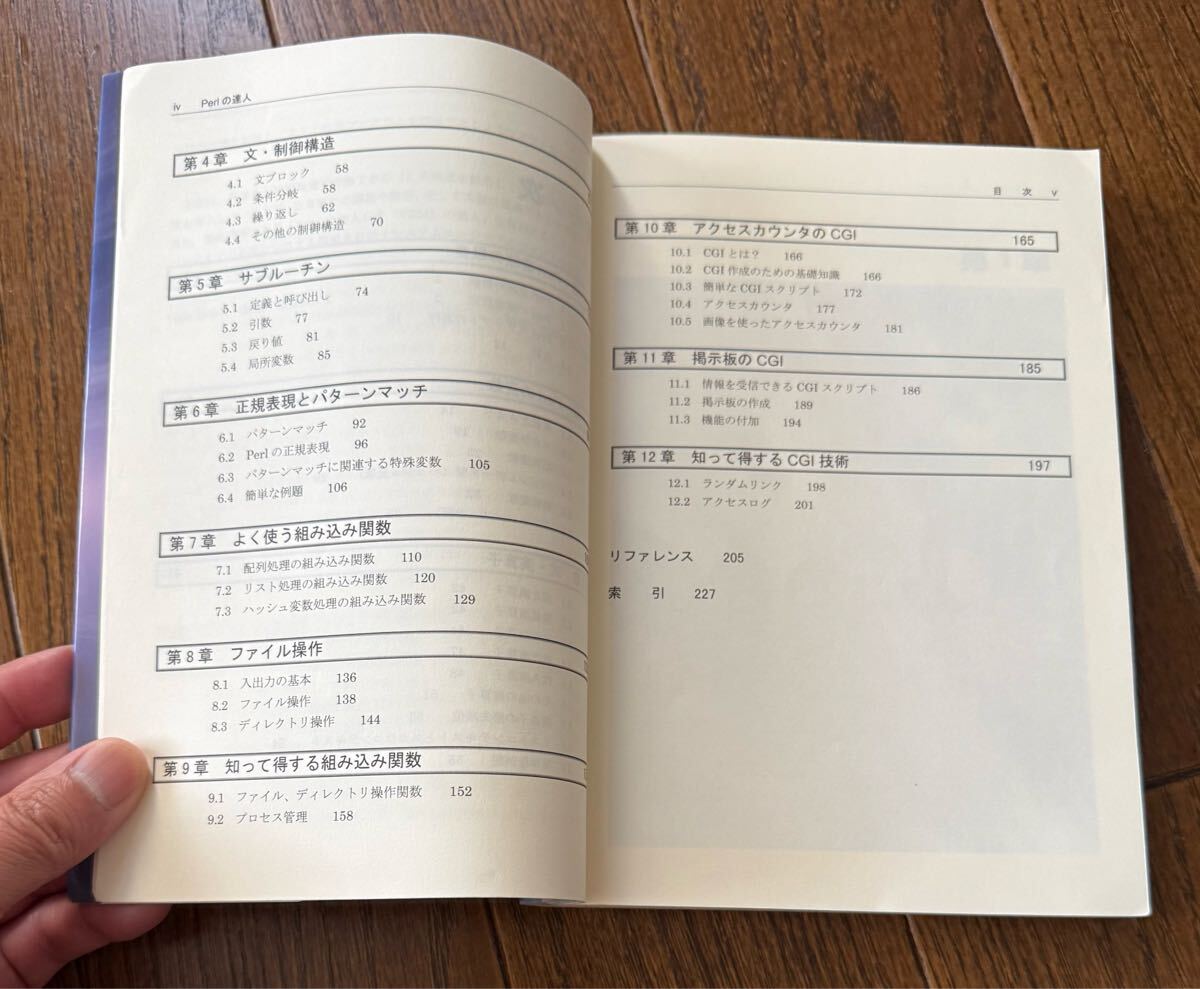 iv　Perlの達人
第4章　文・制御構造
4.1　文ブロック　58
4.2　条件分岐　58
4.3　繰り返し　62
4.4　その他の制御構造　70
第5章　サブルーチン
5.1　定義と呼び出し　74
5.2　引数　77
5.3　戻り値　81
5.4　局所変数　85
第6章　正規表現とパターンマッチ
6.1　パターンマッチ　92
6.2　Perlの正規表現　96
6.3　パターンマッチに関連する特殊変数　105
6.4　簡単な例題　106
第7章　よく使う組み込み関数
7.1　配列処理の組み込み関数　110
7.2　リスト処理の組み込み関数　120
7.3　ハッシュ変数処理の組み込み関数　129
第8章　ファイル操作
8.1　入出力の基本　136
8.2　ファイル操作　138
8.3　ディレクトリ操作　144
第9章　知って得する組み込み関数
9.1　ファイル、ディレクトリ操作関数　152
9.2　プロセス管理　158
目　次　v
第10章　アクセスカウンタのCGI　165
10.1　CGIとは？　166
10.2　CGI作成のための基礎知識　166
10.3　簡単なCGIスクリプト　172
10.4　アクセスカウンタ　177
10.5　画像を使ったアクセスカウンタ　181
第11章　掲示板のCGI　185
11.1　情報を受信できるCGIスクリプト　186
11.2　掲示板の作成　189
11.3　機能の付加　194
第12章　知って得するCGI技術　197
12.1　ランダムリンク　198
12.2　アクセスログ　201
リファレンス　205
索　引　227